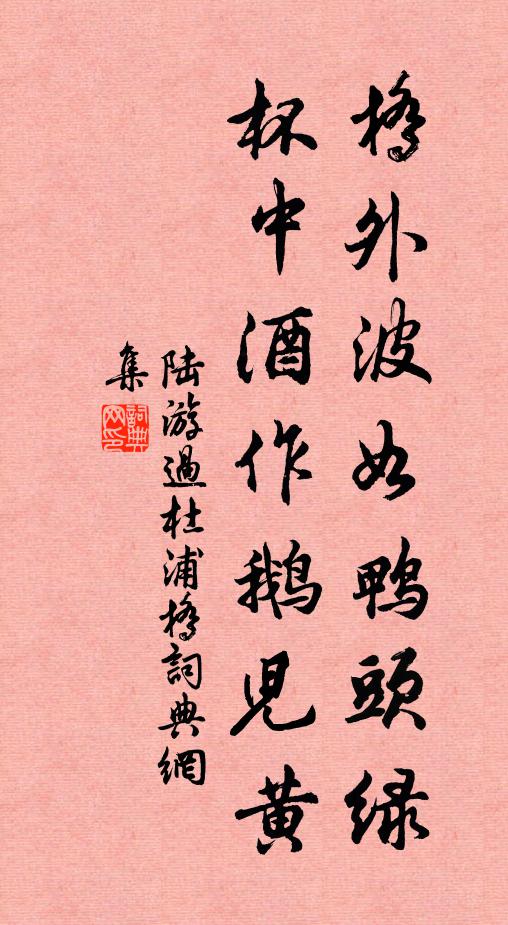 橋外波如鴨頭綠
杯中酒作鵝兒黃
陸游過杜浦橋詞典網
集
詞典
网印